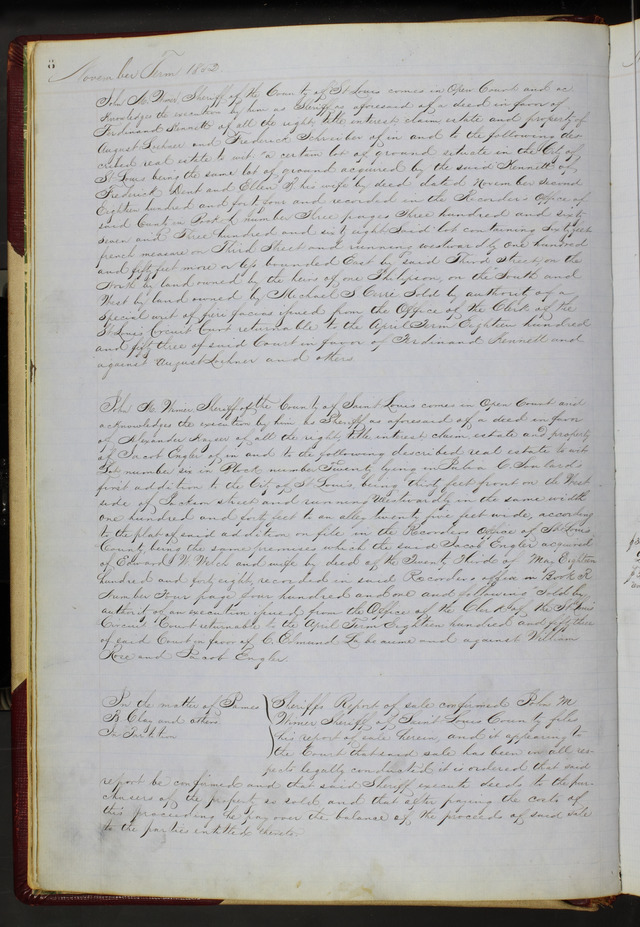 8
November Term 1852
John M. Wimer Sheriff of the County of St Louis comes in Open Court and ac
knowledges the execution by him as Sheriff as aforesaid of a deed in favor of
Ferdinand Kennett of all the right, title interest, claim, estate and property of
August Lochner and Frederick Schreiber of in and to the following des
cribed real estate to wit "a certain lot of ground situate in the City of
St Louis being the same lot of ground acquired by the said Kennett of
Frederick Dent and Ellen B his wife by deed dated November second
Eighteen hundred and forty four and recorded in the Recorders Office of
said County in Book number Three pages Three hundred and sixty
seven and Three hundred and sixty eight Said lot containing Sixty feet
french measure on Third Street and running westwardly one hundred
and fifty feet more or less bounded East by said Third Street, on the
North by land owned by the heirs of one Philipson, on the South and
West by land owned by Michael S Cerre Sold by authority of a
special writ of fiere facias issued from the Office of the Clerk of the
St Louis Circuit Court returnable to the April Term Eighteen hundred
and fifty three of said Court in favor of Ferdinand Kennett and
against August Lochner and others
John M. Wimer Sheriff of the County of Saint Louis comes in Open Court and
acknowledges the execution by him as Sheriff as aforesaid of a deed in favor
of Alexander Kayser of all the right, title interest claim, estate and property
of Jacob Engler of in and to the following described real estate to wit
Lot number six in Block number Twenty lying in Julia C. Soulards
first addition to the City of St Louis being thirty feet front on the West
side of Jackson street and running Westwardly in the same width
one hundred and forty feet to an alley twenty five feet wide, according
to the plat of said addition on file in the Recorders Office of St Louis
County being the same premises which the said Jacob Engler acquired
of Edward W Welch and wife by deed of the Twenty Third of May Eighteen
hundred and forty eight, recorded in said Recorders office in Book R
Number Four page four hundred and one and following Sold by
authority of an execution issued from the Office of the Clerk of the St Louis
Circuit Court returnable to the April Term Eighteen hundred and fifty three
of said Court in favor of C. Edmund Labeaume and against William
Rose and Jacob Engler
In the matter of James
R Clay and others
In Partition
Sheriffs Report of sale confirmed John M
Wimer Sheriff of Saint Louis County files
his report of sale herein, and it appearing to
the Court that said sale has been in all res-
pects legally conducted it is ordered that said
report be confirmed and that said Sheriff execute deeds to the pur-
chasers of the property so sold and that after paying the costs of
this proceeding he pay over the balance of the proceeds of said sale
to the parties entitled thereto